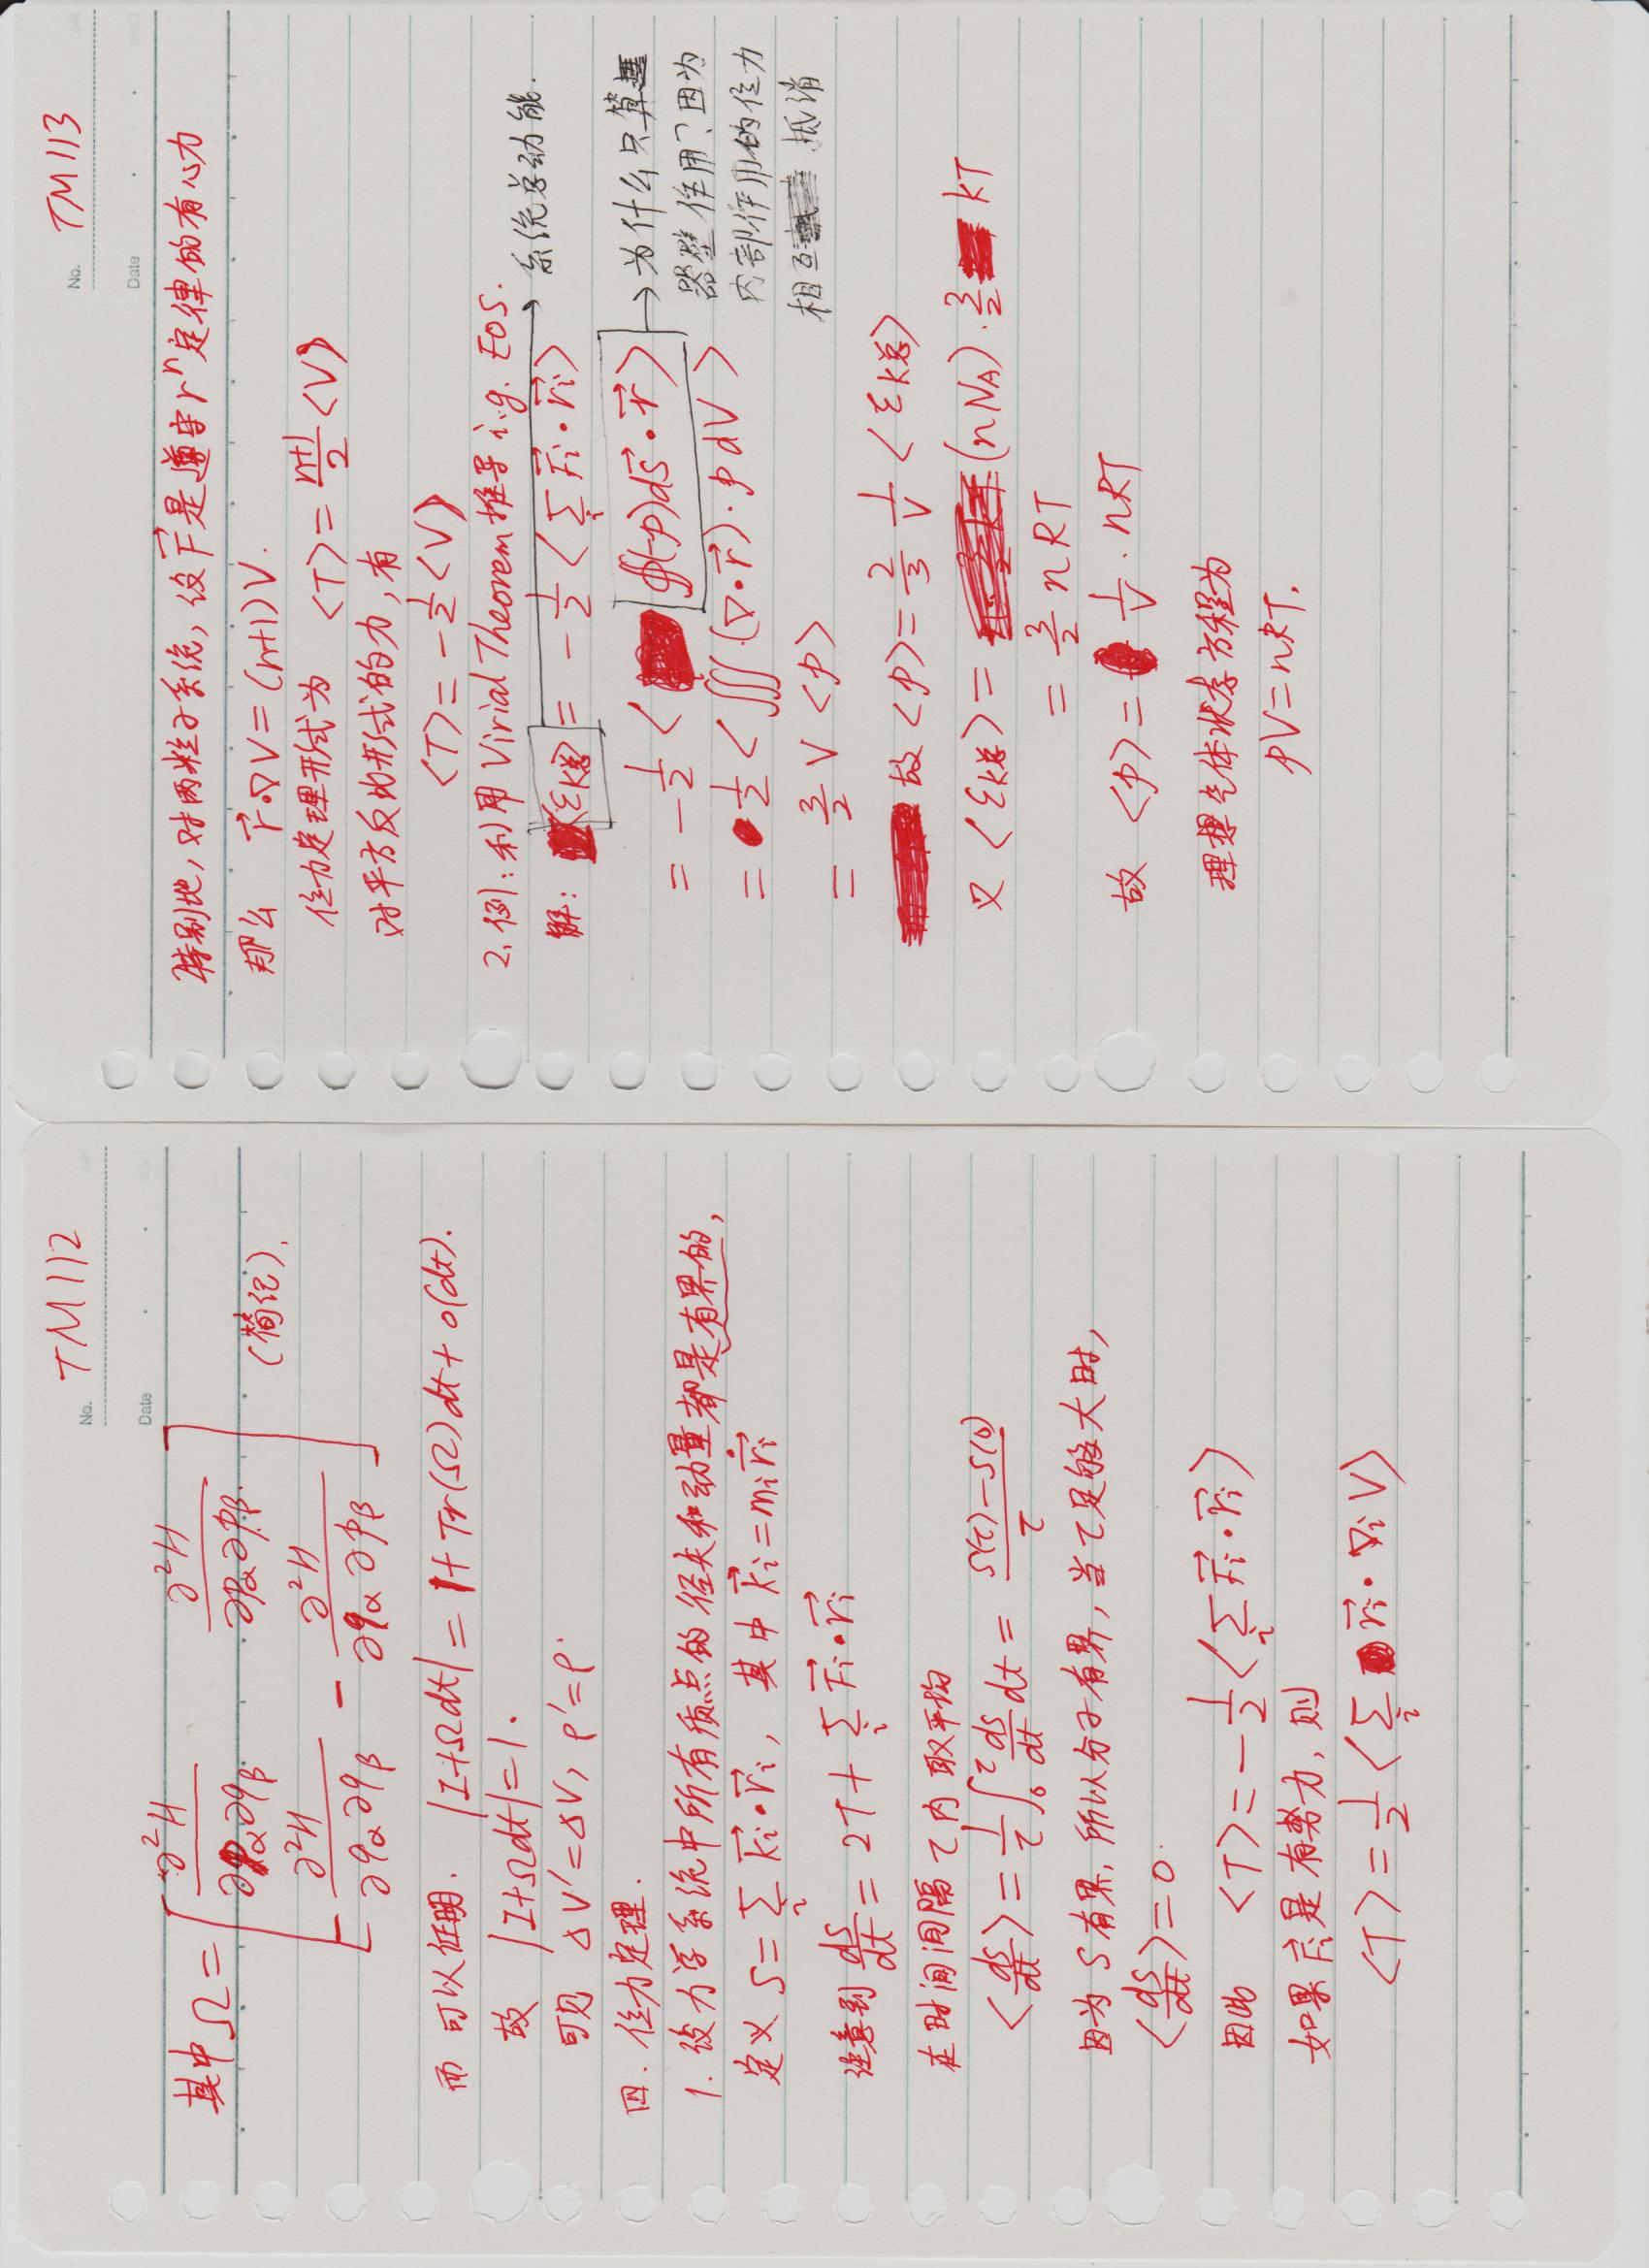 No. TM112
Date
其中 Ω = [ ∂²H/∂pα∂qβ   ∂²H/∂pα∂pβ
- ∂²H/∂qα∂qβ   - ∂²H/∂qα∂pβ ] (简记).
而可以证明. |I+Ωdt| = 1+Tr(Ω)dt+o(dt).
故 |I+Ωdt|=1.
可见 ΔV'=ΔV, ρ'=ρ.
四. 位力定理.
1. 设力学系统中所有质点的径矢和动量都是有界的,
定义 S=∑ᵢ k⃗ᵢ·r⃗ᵢ, 其中 k⃗ᵢ=mᵢṙ⃗ᵢ
注意到 dS/dt = 2T + ∑ᵢ F⃗ᵢ·r⃗ᵢ
在时间间隔τ内取平均
〈dS/dt〉= 1/τ ∫₀^τ dS/dt dt = (S(τ)-S(0))/τ
因为 S 有界, 所以分子有界, 当τ足够大时,
〈dS/dt〉=0.
因此 〈T〉= -1/2〈∑ᵢ F⃗ᵢ·r⃗ᵢ〉
如果 F⃗ᵢ 是有势力, 则
〈T〉= 1/2〈∑ᵢ r⃗ᵢ·∇ᵢV〉
No. TM113
Date
特别地, 对两粒子系统, 设 F⃗ 是遵守 rⁿ 定律的有心力
那么 r⃗·∇V=(n+1)V.
位力定理形式为 〈T〉= (n+1)/2〈V〉
对平方反比形式的力, 有
〈T〉= -1/2〈V〉
2. 例: 利用 Virial Theorem 推导 i.g. EOS.
解: 〈εK总〉= -1/2〈∑ᵢ F⃗ᵢ·r⃗ᵢ〉
系统总动能.
= -1/2〈∯(-p)ds⃗·r⃗〉
为什么只算
器壁作用? 因为
内部作用的位力
相互抵消
= 1/2〈∭(∇·r⃗)·p dV〉
= 3/2 V〈p〉
故〈p〉= 2/3 1/V〈εK总〉
又〈εK总〉= (nNA)·3/2 kT
= 3/2 nRT
故 〈p〉= 1/V · nRT
理想气体状态方程为
pV=nRT.